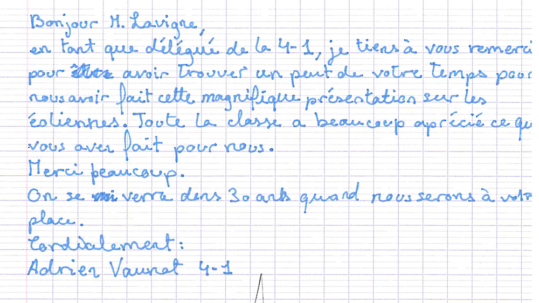 Bonjour M. Lavigne,
en tant que délégué de la 4-1, je tiens à vous remerci
pour avoir trouver un peut de votre temps pour
nous avoir fait cette magnifique présentation sur les
éoliennes. Toute la classe a beaucoup aprécié ce qu
vous aver fait pour nous.
Merci peaucoup.
On se verra dans 30 ans quand nous serons à votr
place.
Cordialement :
Adrien Vaunat 4-1